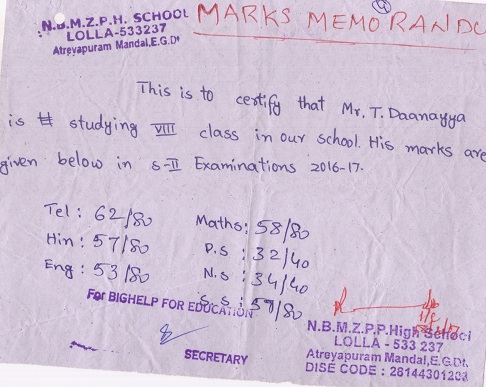 N.B.M.Z.P.H. SCHOOL
LOLLA-533237
Atreyapuram Mandal,E.G.Dt
MARKS MEMORANDU
This is to certify that Mr. T. Daanayya
is studying VIII class in our school. His marks are
given below in S-II Examinations 2016-17.
Tel : 62/80
Hin : 57/80
Eng : 53/80
Maths : 58/80
P.S : 32/40
N.S : 34/40
S.S : 59/80
For BIGHELP FOR EDUCATION
SECRETARY
N.B.M.Z.P.P.High School
LOLLA - 533 237
Atreyapuram Mandal,E.G.Dt.
DISE CODE : 28144301203